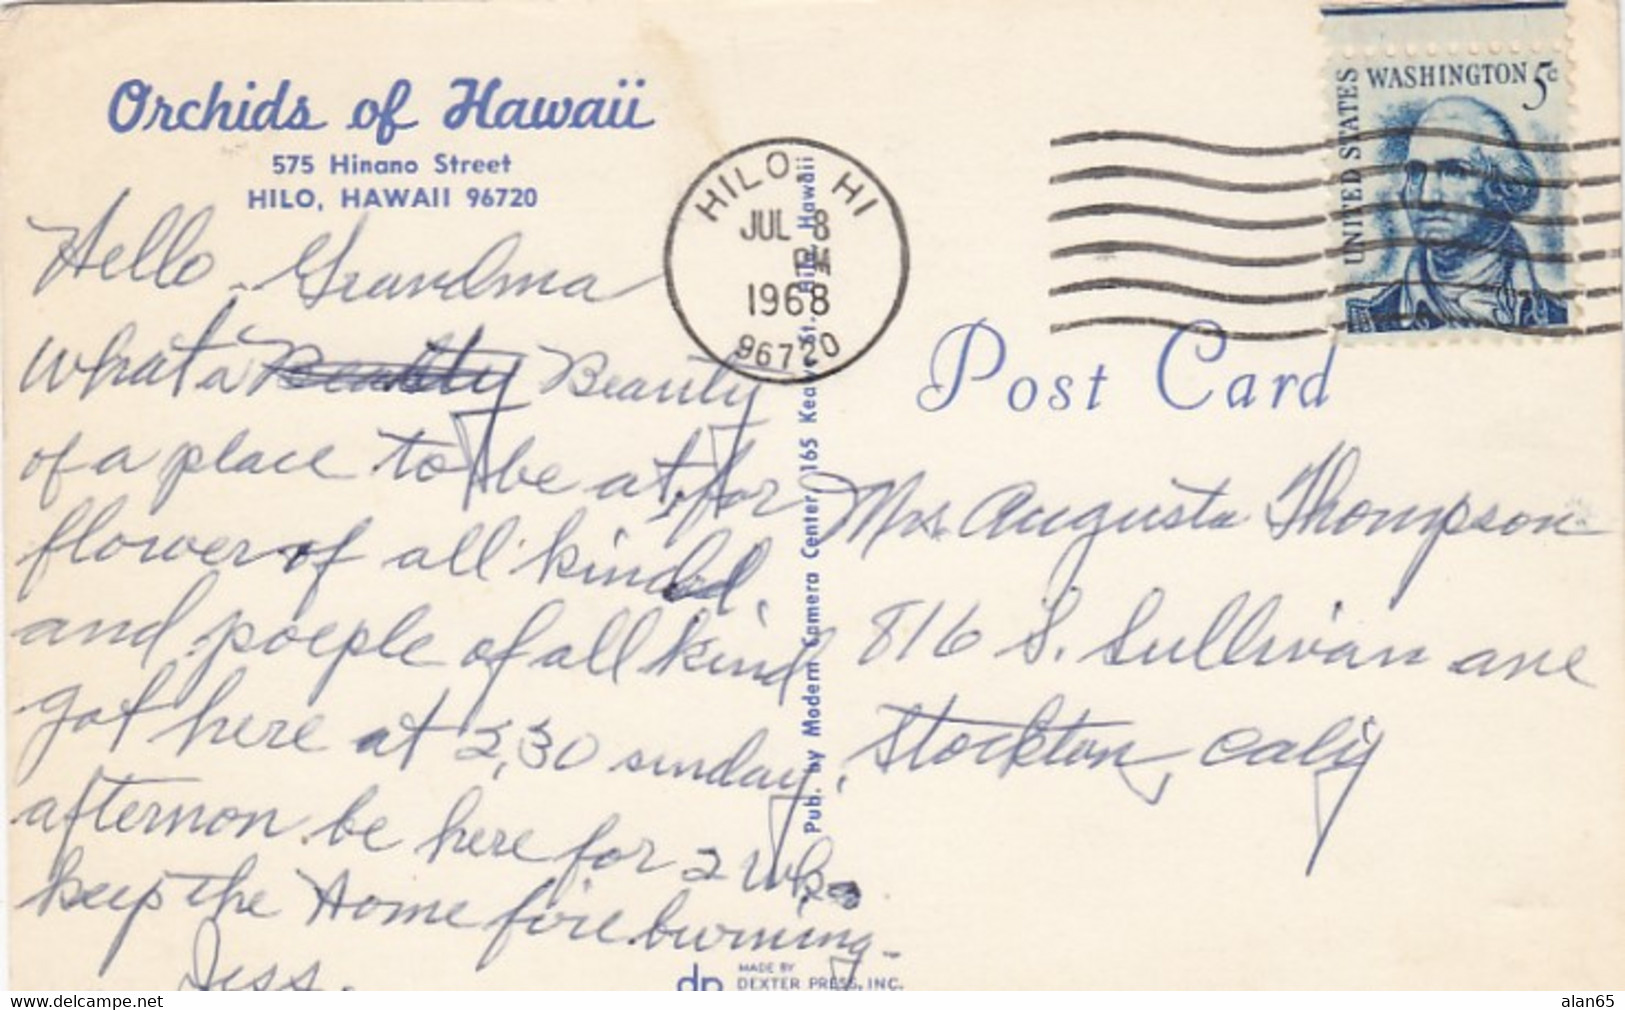 Orchids of Hawaii
575 Hinano Street
HILO, HAWAII 96720
Hello Grandma
what a Beauty
of a place to be at, for
flower of all kind,
and poeple of all kind
got here at 2,30 sunday,
afternon be here for 2 wks
keep the Home fire burning-
Jess.
HILO, HI
JUL 8
PM
1968
96720
UNITED STATES
WASHINGTON 5c
Post Card
Mrs. Augusta Thompson
816 S. Sullivan ave
Stockton, Calif
Pub. by Modern Camera Center, 165 Keawe St., Hilo, Hawaii
dp
MADE BY
DEXTER PRESS, INC.
www.delcampe.net
alan65